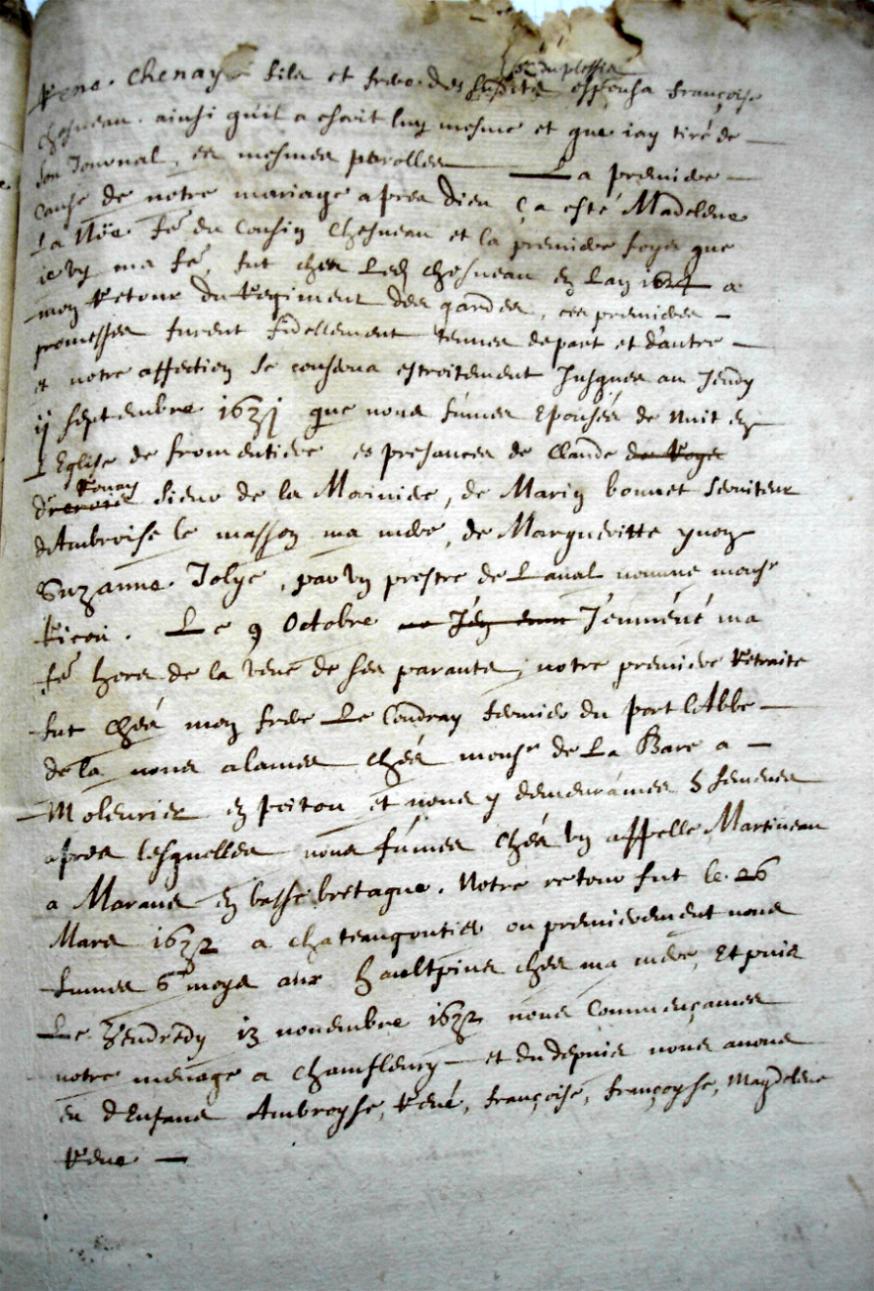 sr du plessis
René Chenaye fils et frere des susdits espousa françoise
Chesneau ainsi quil a escrit luy mesme et que iay tiré de
son Journal, es mesmes parolles La premiere
cause de notre mariage apres dieu ça esté Madelene
La Noë fe du cousin Chesneau et la premiere foys que
ie vy ma fe, fut chés Led chesneau en Lan
mon Retour du Regiment des gardes, ces premieres
promesses furent fidellement tenues depart et d'autre
et notre affection se conserva estroitement Jusques au Jeudy
ij septembre 1631 que nous fumes Epousés de nuit en
L'Eglise de fromentiere es presances de Claude
Sieur de la Mariniere, de Marin bonnet serviteur
d'Ambroise le masson ma mere, de Margueritte ynoy
Suzanne Jolye, par vn prestre de Laual nomme monsr
Ricou. Le 9 Octobre J'emmené ma
fe hors de la veuë de ses parants, notre premiere Retraite
fut chés mon frere Le Coudray fermier du port l'Abbe
de la nous alames chés monsr de La Bare a
Moleurier en poitou et nous y demeurâmes 5 semenes
apres lesquelles nous fûmes chés vn appelle Martineau
a Marans en basse bretagne. Notre retour fut le 26
Mars 1632 a chateaugontier ou premierement nous
fumes 6 moys aux haultpins chés ma mere, Et puis
Le Vendredy 13 nouembre 1632 nous Commençames
notre menage a chamfleury et du depuis nous auons
eu d'Enfans Ambroyse, René, françoise, françoyse, Magdelene
René